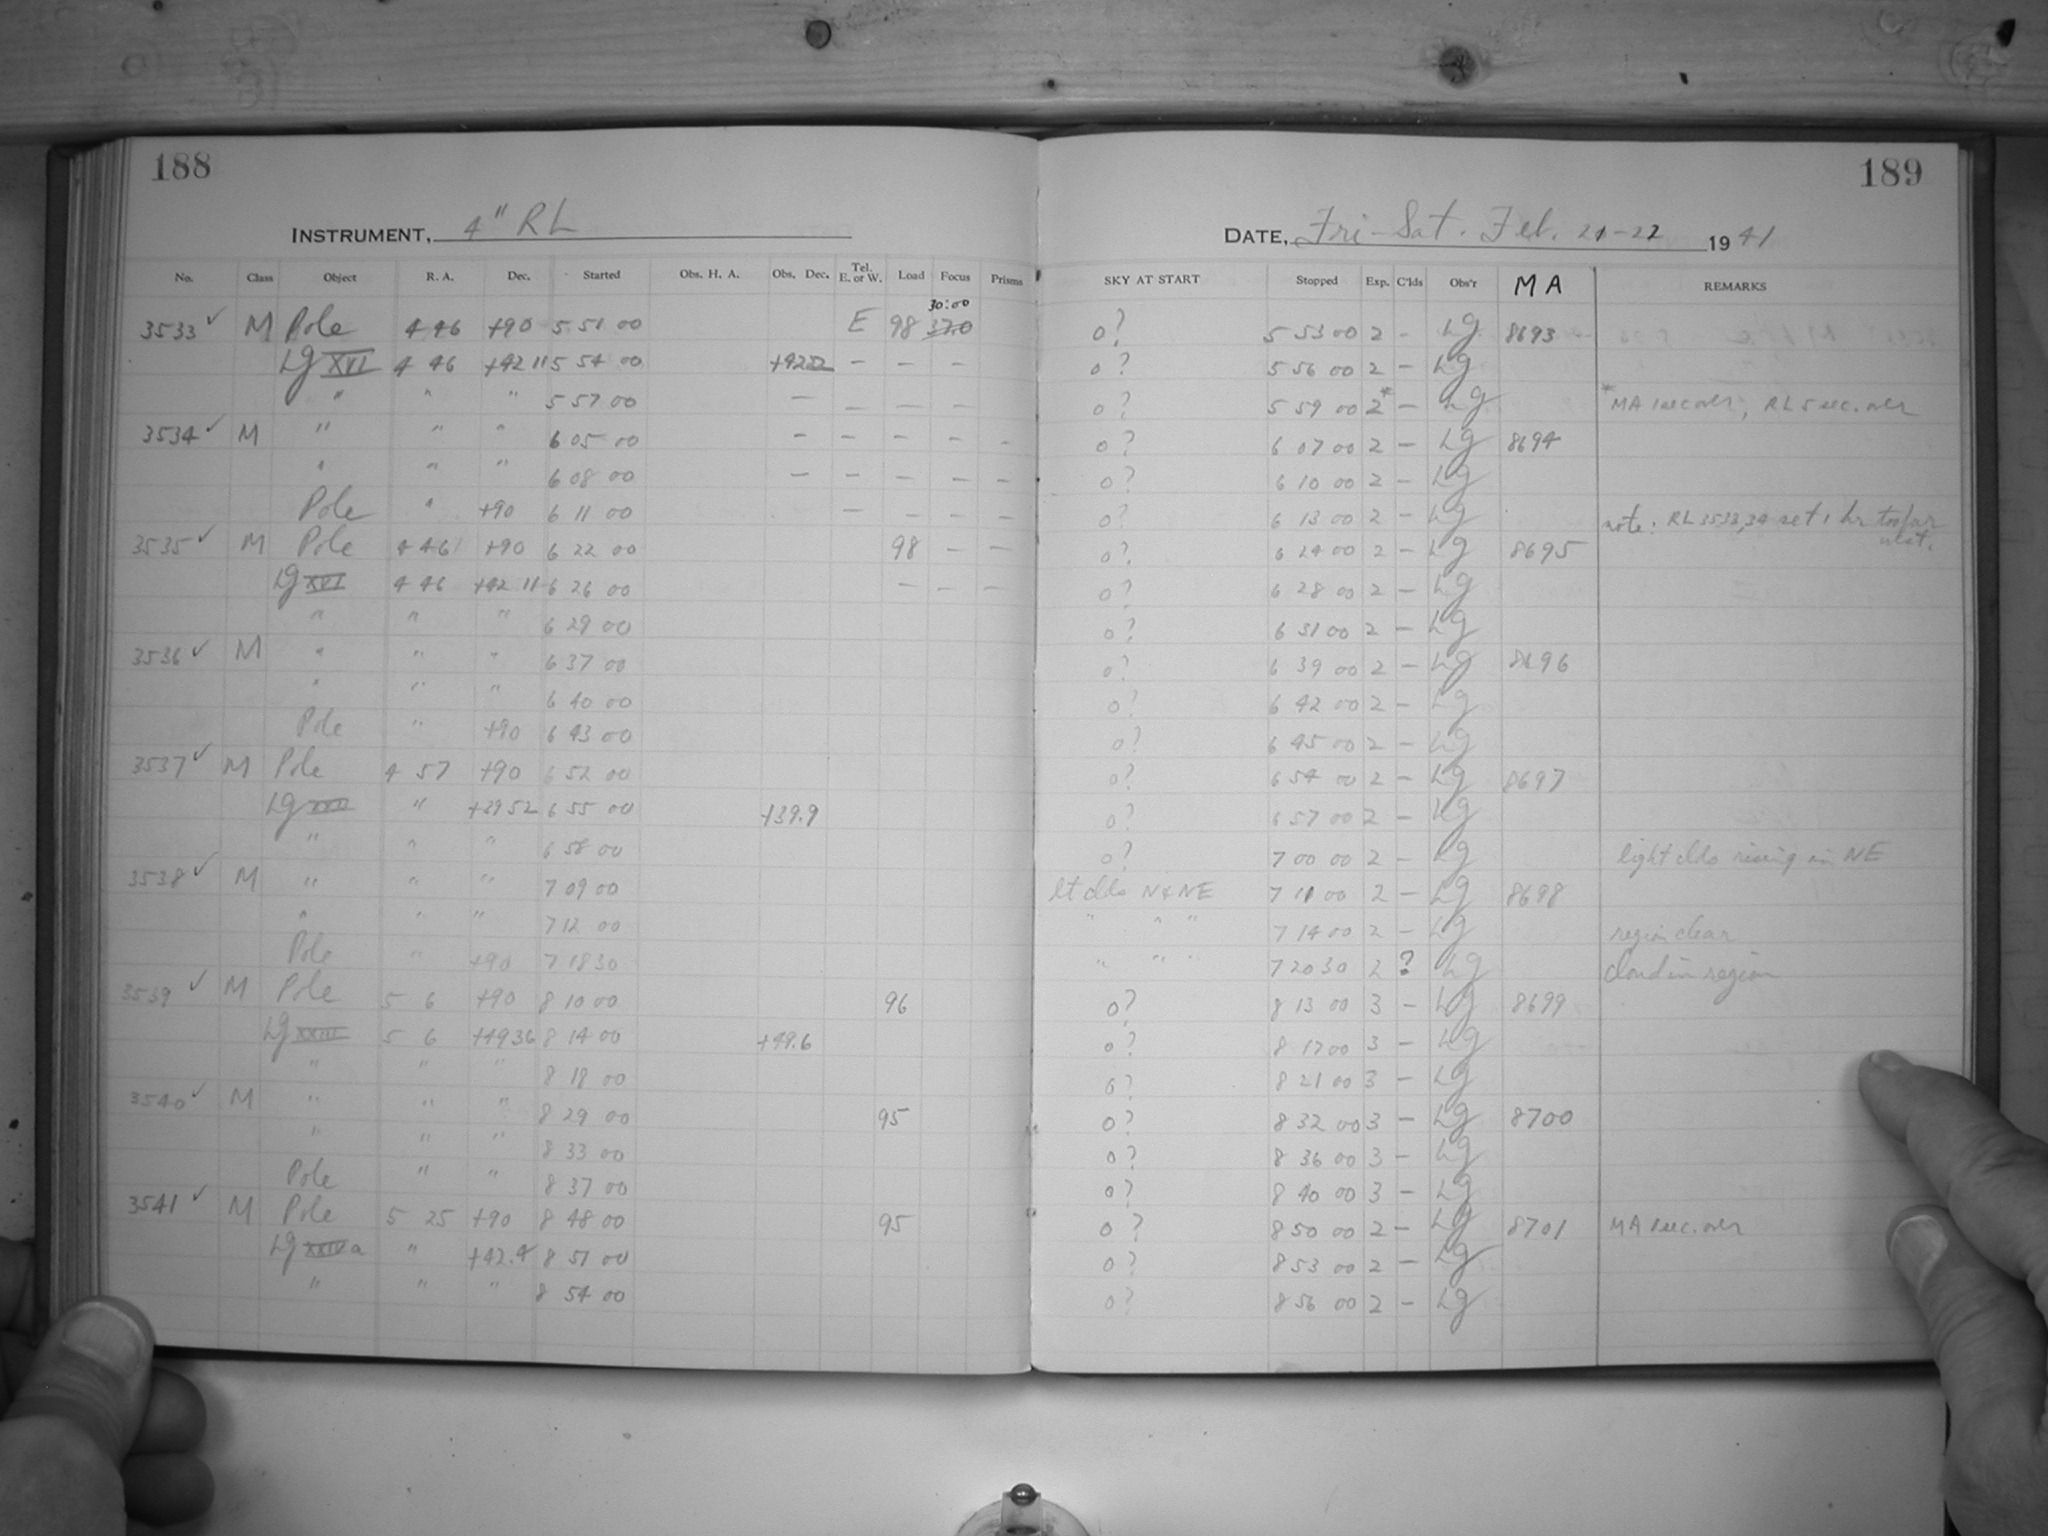 188
189
INSTRUMENT, 4" RL
DATE, Fri-Sat. Feb. 21-22 1941
No. Class Object R. A. Dec. Started Obs. H. A. Obs. Dec. Tel. E. or W. Load Focus Prisms SKY AT START Stopped Exp. C'lds Obs'r MA REMARKS
30:00
3533 ✓ M Pole 4 46 +90 5 51 00 E 98 37.0 0? 5 53 00 2 - Lg 8693
Lg XVI 4 46 +42 11 5 54 00 +42.2 — — — 0? 5 56 00 2 — Lg
" " " 5 57 00 — — — — 0? 5 59 00 2* — Lg *MA 1 sec over, RL 5 sec. over
3534 ✓ M " " " 6 05 00 — — — — — 0? 6 07 00 2 — Lg 8694
" " " 6 08 00 — — — — — 0? 6 10 00 2 — Lg
Pole " +90 6 11 00 — — — — 0? 6 13 00 2 — Lg note: RL 3533,34 set 1 hr too far west.
3535 ✓ M Pole 4 46 +90 6 22 00 98 — — 0? 6 24 00 2 — Lg 8695
Lg XVI 4 46 +42 11 6 26 00 — — — 0? 6 28 00 2 — Lg
" " " 6 29 00 0? 6 31 00 2 — Lg
3536 ✓ M " " " 6 37 00 0? 6 39 00 2 — Lg 8696
" " " 6 40 00 0? 6 42 00 2 — Lg
Pole " +90 6 43 00 0? 6 45 00 2 — Lg
3537 ✓ M Pole 4 57 +90 6 52 00 0? 6 54 00 2 — Lg 8697
Lg " +39 52 6 55 00 +39.9 0? 6 57 00 2 — Lg
" " " 6 58 00 0? 7 00 00 2 — Lg light clds rising in NE
3538 ✓ M " " " 7 09 00 lt clds N & NE 7 11 00 2 — Lg 8698
" " " 7 12 00 " " " 7 14 00 2 — Lg region clear
Pole " +90 7 18 30 " " " 7 20 30 2 ? Lg cloud in region
3539 ✓ M Pole 5 6 +90 8 10 00 96 0? 8 13 00 3 — Lg 8699
Lg XXIII 5 6 +49 36 8 14 00 +49.6 0? 8 17 00 3 — Lg
" " " 8 18 00 0? 8 21 00 3 — Lg
3540 ✓ M " " " 8 29 00 95 0? 8 32 00 3 — Lg 8700
" " " 8 33 00 0? 8 36 00 3 — Lg
Pole " " 8 37 00 0? 8 40 00 3 — Lg
3541 ✓ M Pole 5 25 +90 8 48 00 95 0? 8 50 00 2 — Lg 8701 MA 1 sec. over
Lg XXIV a " +42.4 8 51 00 0? 8 53 00 2 — Lg
" " " 8 54 00 0? 8 56 00 2 — Lg